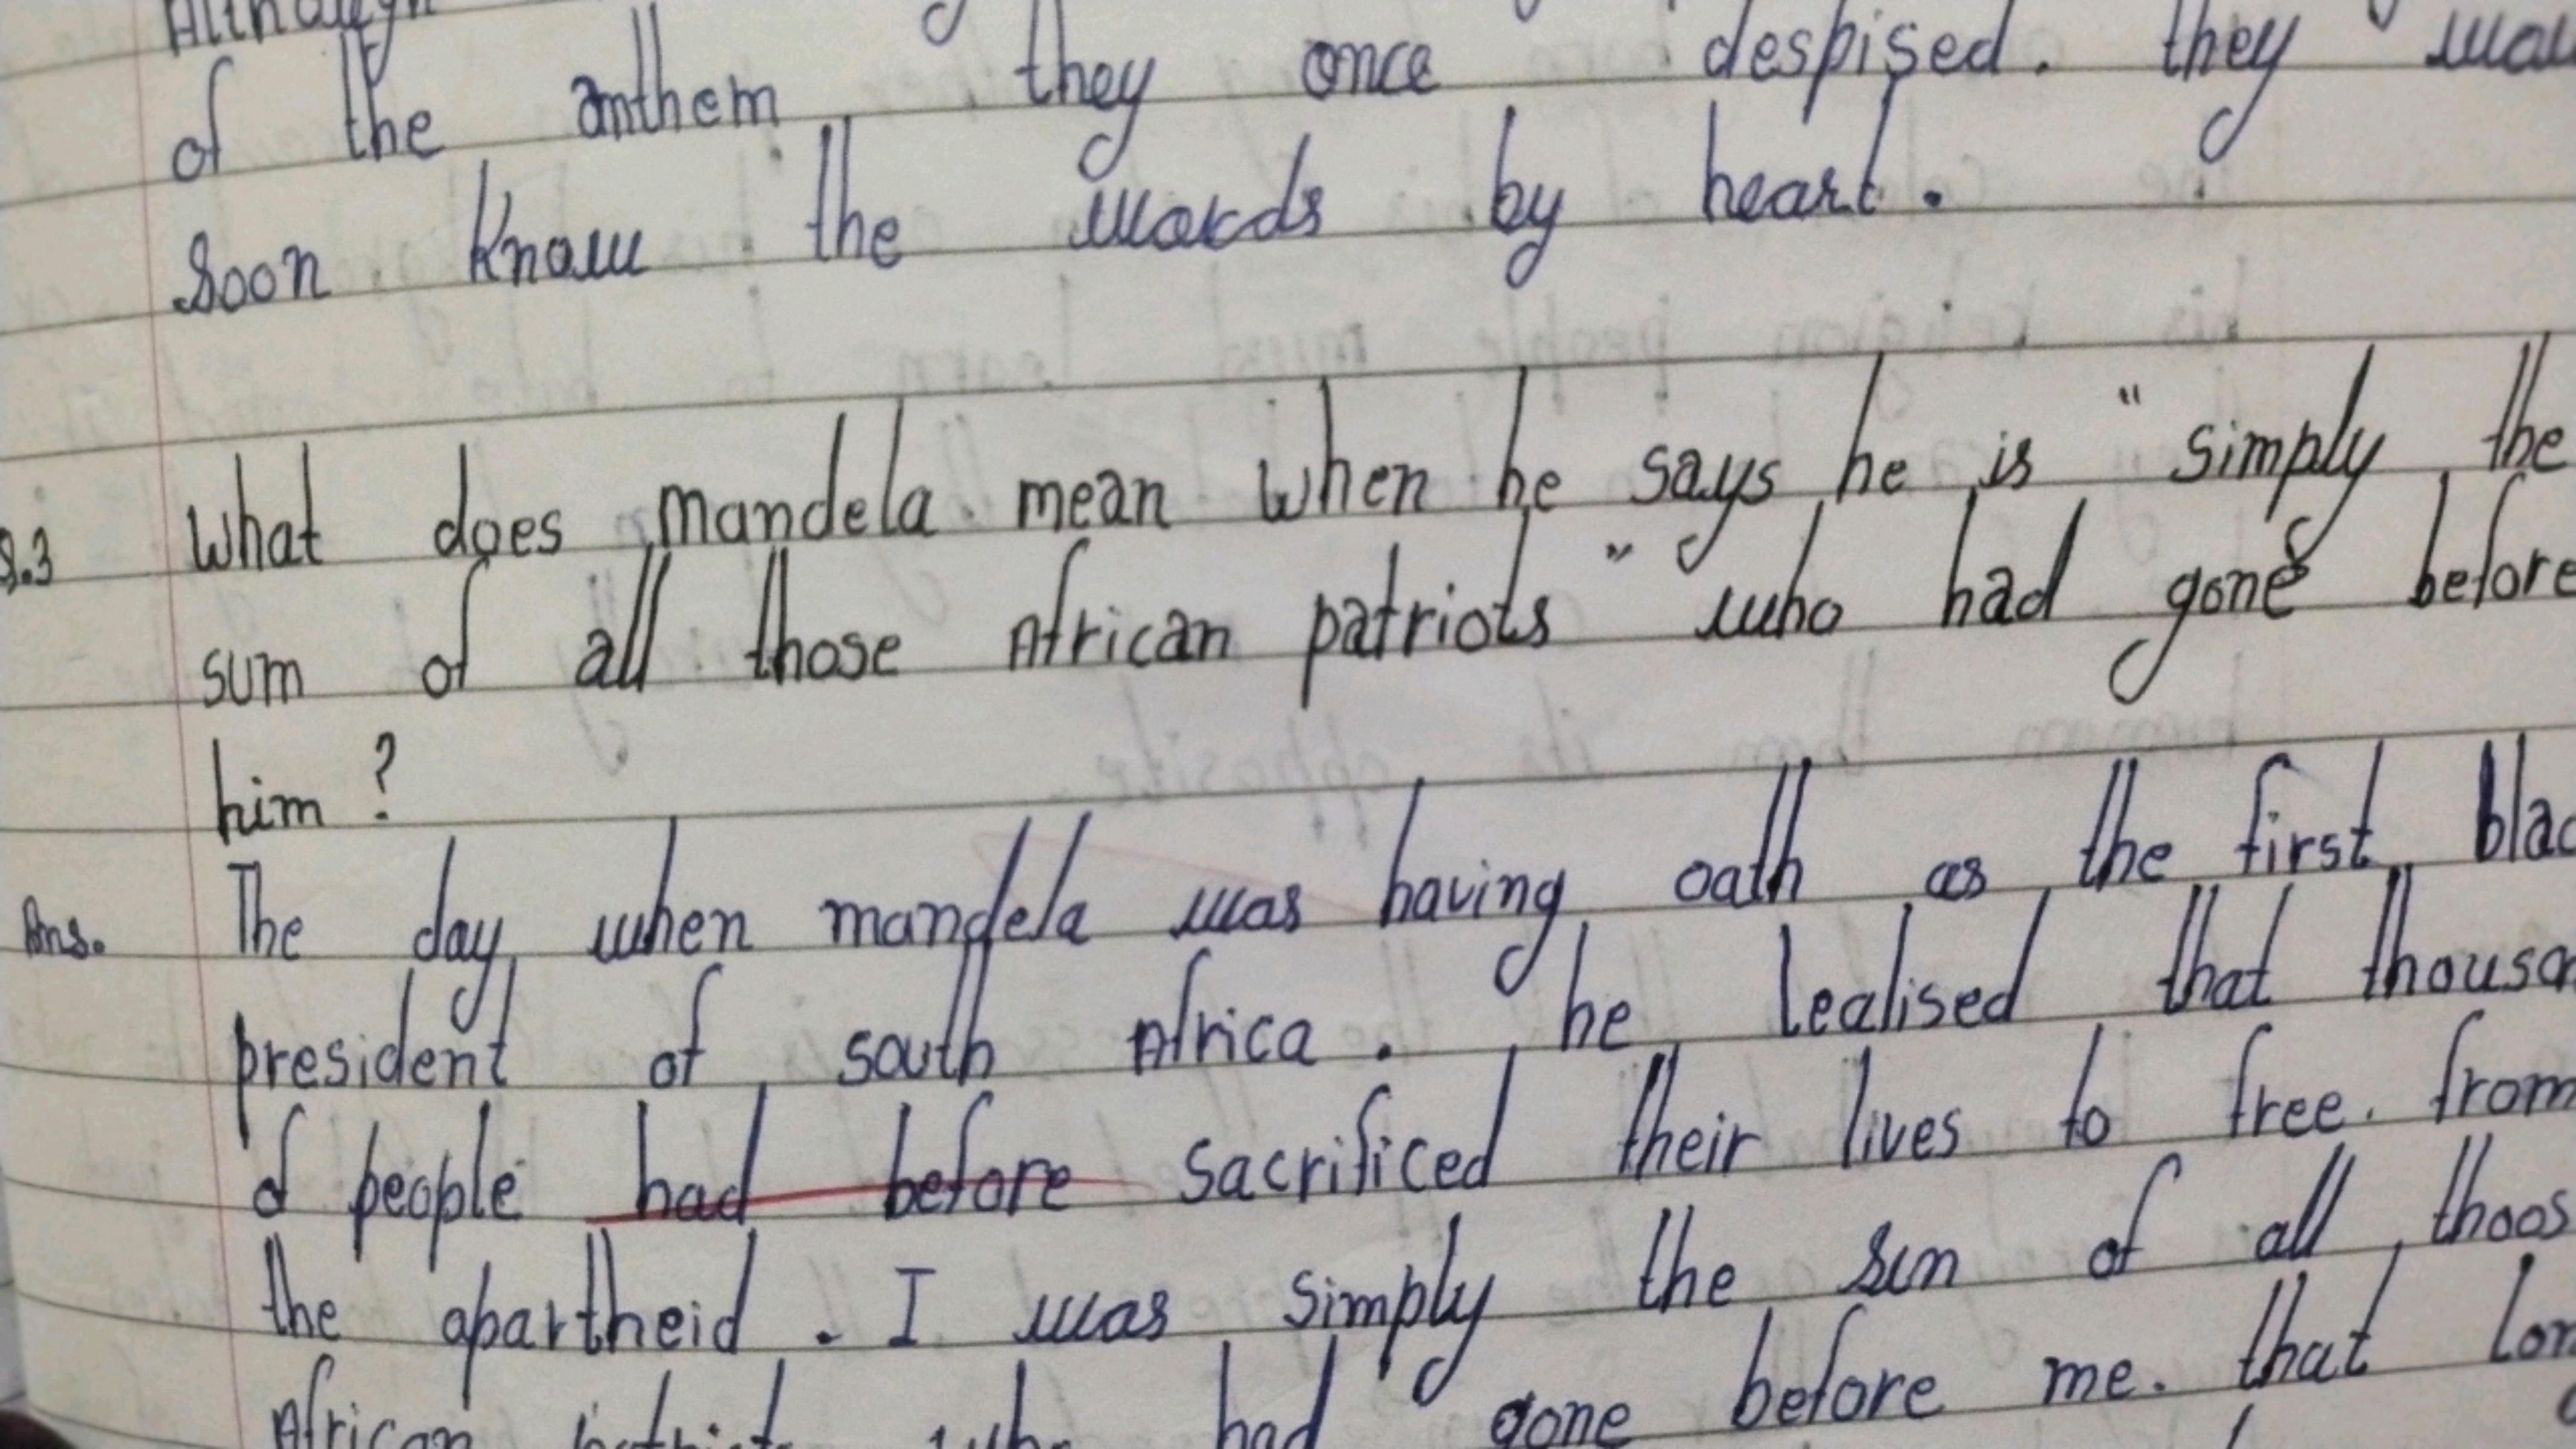 of the anthem they once despised. they
Soon Know the words by heart.
Q.3 What does mandela mean when he says he is " simply the
sum of all those African patriots " who had gone before
him ?
Ans. The day when mandela was having oath as the first
president of south Africa. he lealised that
of people had before sacrificed their lives to free. from
the apartheid. I was simply the sun of all
African who had gone before me. that